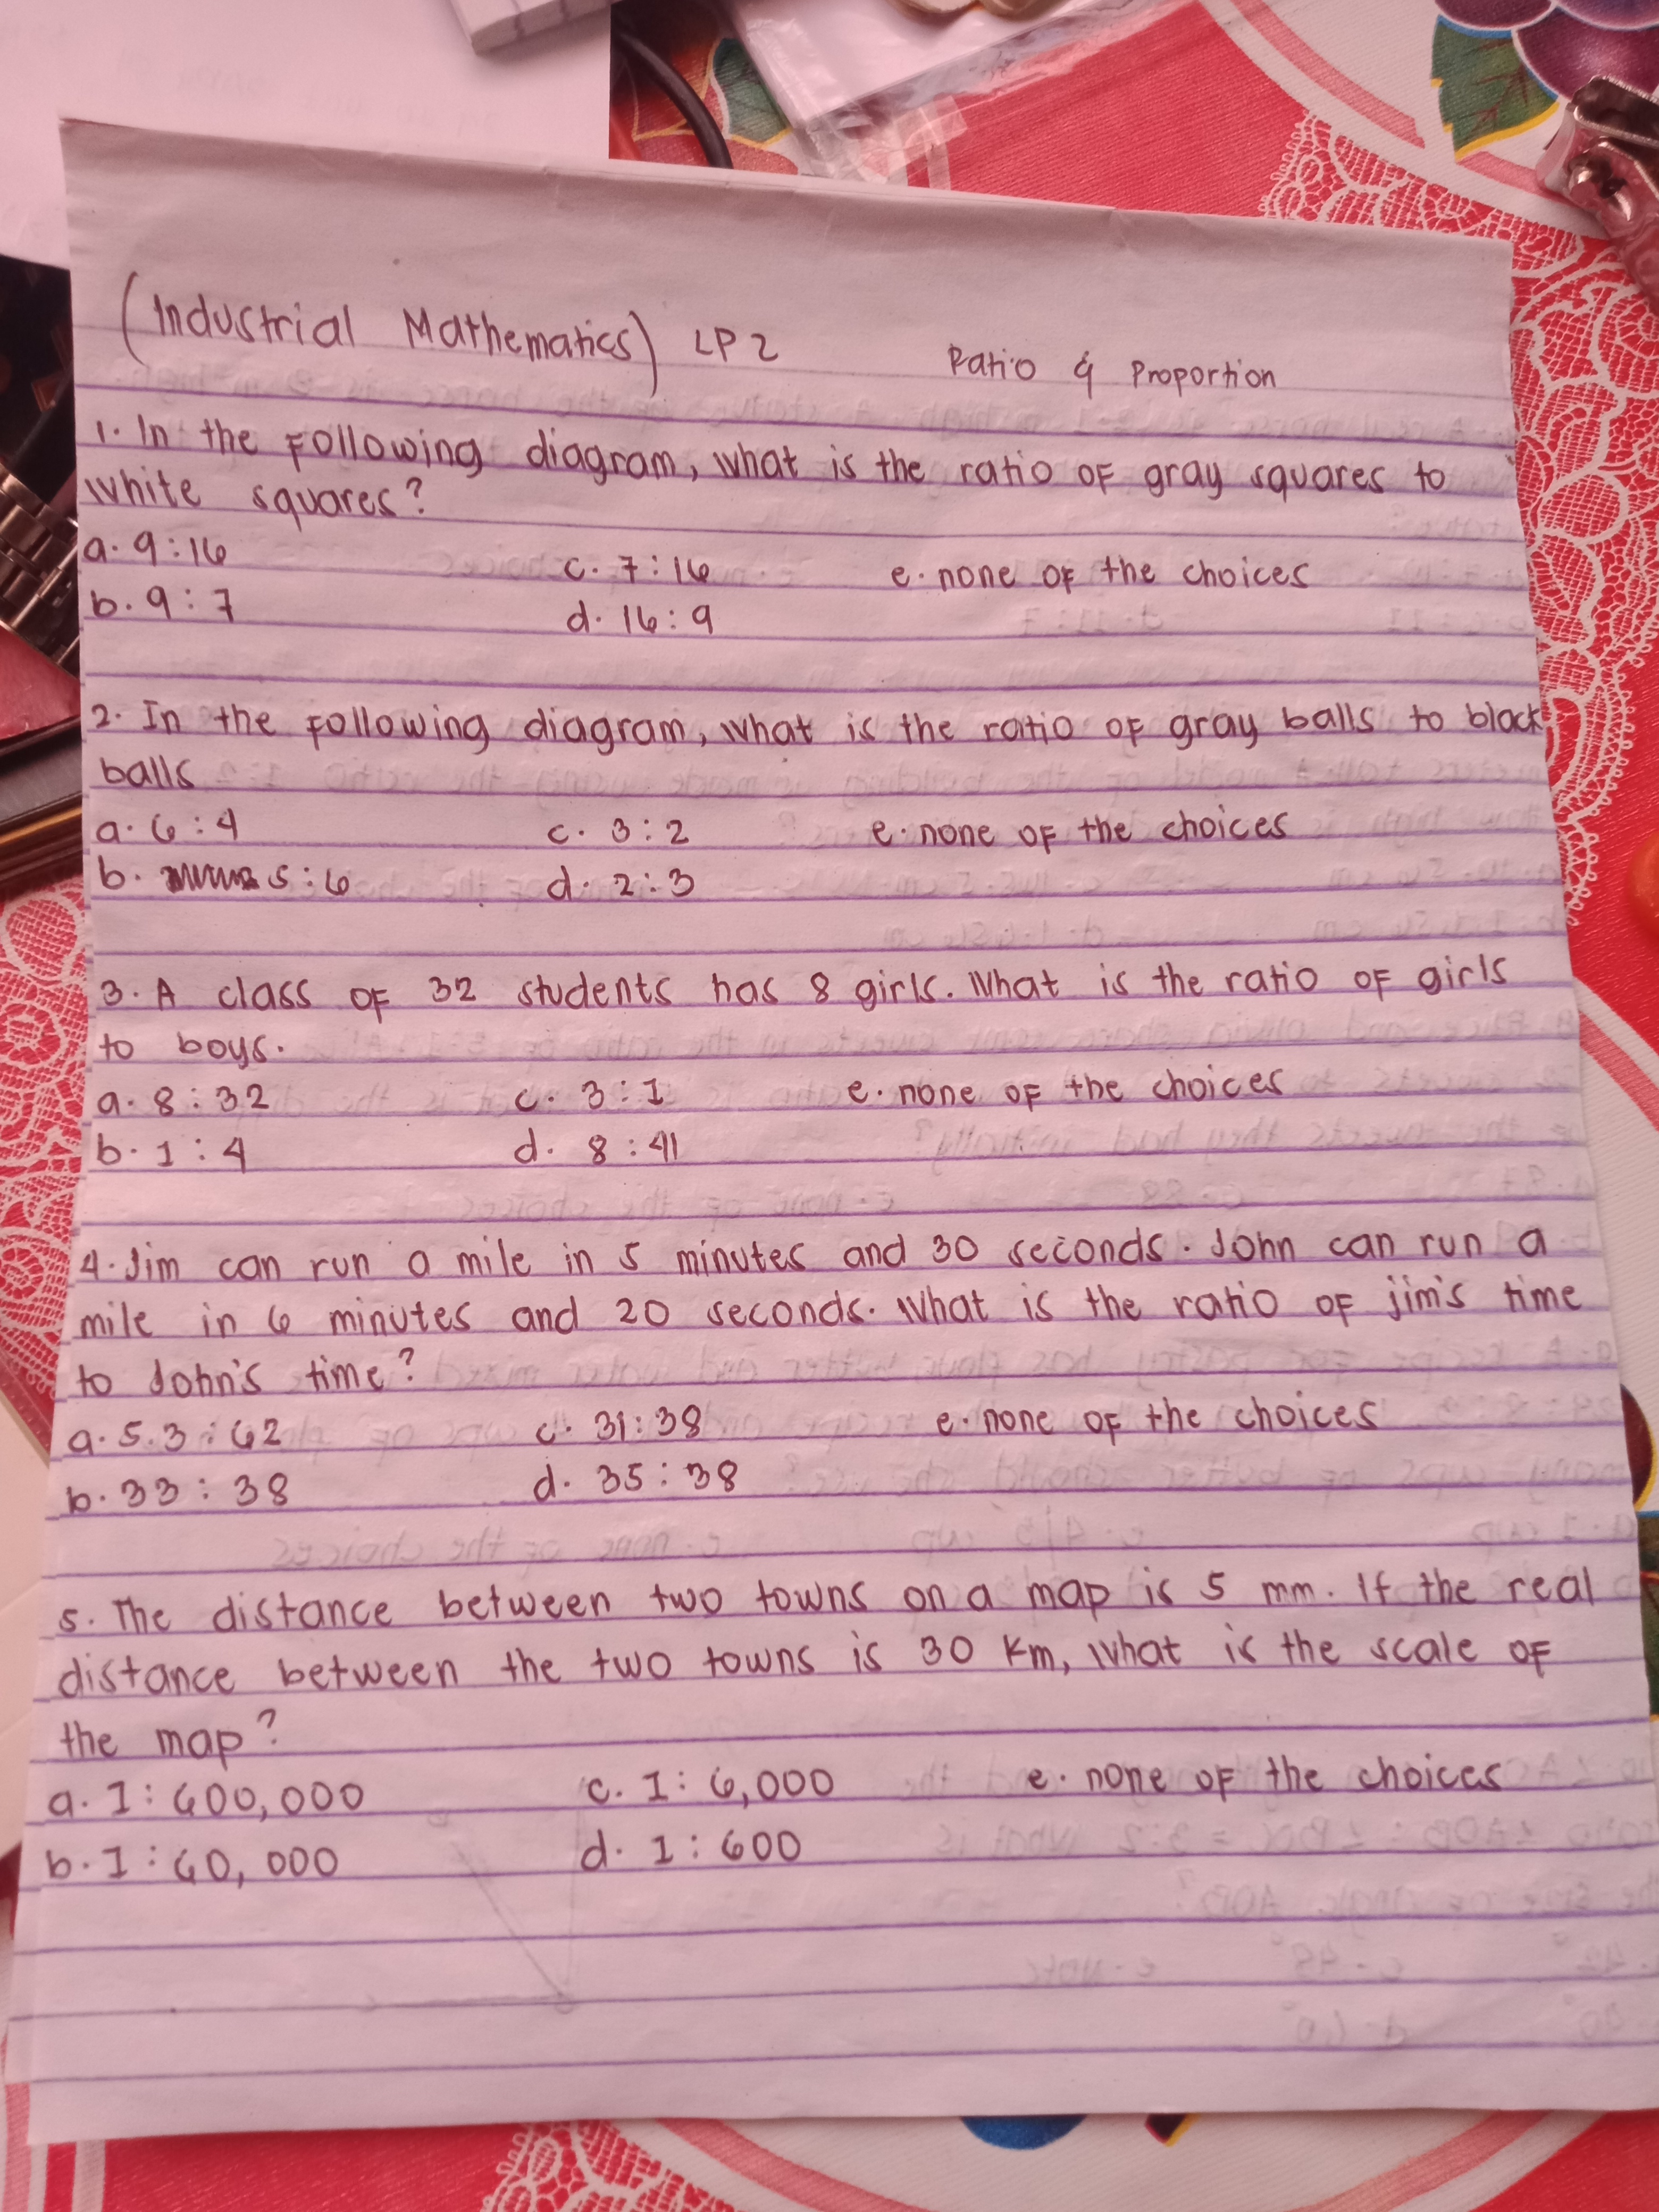 (Industrial Mathematics) LP 2 Ratio & Proportion
1. In the following diagram, what is the ratio of gray squares to
white squares?
a. 9:16 c. 7:16 e. none of the choices
b. 9:7 d. 16:9
2. In the following diagram, what is the ratio of gray balls to black
balls
a. 6:4 c. 3:2 e. none of the choices
b. 5:6 d. 2:3
3. A class of 32 students has 8 girls. What is the ratio of girls
to boys.
a. 8:32 c. 3:1 e. none of the choices
b. 1:4 d. 8:41
4. Jim can run a mile in 5 minutes and 30 seconds. John can run a
mile in 6 minutes and 20 seconds. What is the ratio of jim's time
to John's time?
a. 5.3:62 c. 31:38 e. none of the choices
b. 33:38 d. 35:38
5. The distance between two towns on a map is 5 mm. If the real
distance between the two towns is 30 km, what is the scale of
the map?
a. 1:600,000 c. 1:6,000 e. none of the choices
b. 1:60,000 d. 1:600